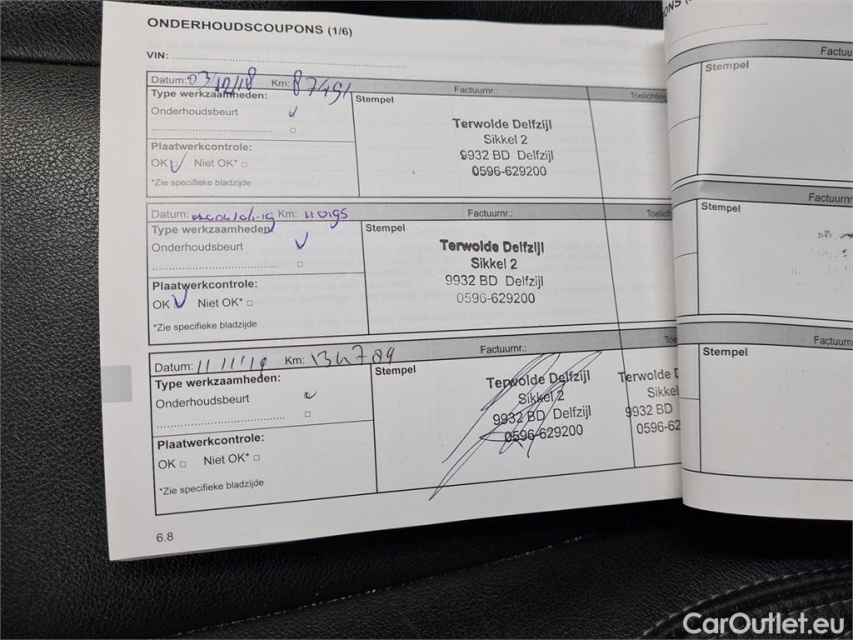 ONDERHOUDSCOUPONS (1/6)
VIN:
Datum: 03/12/18 Km: 87491 Factuurnr.: Toelichting
Type werkzaamheden: Stempel
Onderhoudsbeurt
Terwolde Delfzijl
Sikkel 2
9932 BD Delfzijl
0596-629200
Plaatwerkcontrole:
OK Niet OK*
*Zie specifieke bladzijde
Datum: Km: 110195 Factuurnr.:
Type werkzaamheden: Stempel
Onderhoudsbeurt
Terwolde Delfzijl
Sikkel 2
9932 BD Delfzijl
0596-629200
Plaatwerkcontrole:
OK Niet OK*
*Zie specifieke bladzijde
Datum: 11 11 '19 Km: 134789 Factuurnr.:
Type werkzaamheden: Stempel
Onderhoudsbeurt
Terwolde Delfzijl Terwolde
Sikkel 2 Sikkel
9932 BD Delfzijl 9932 BD
0596-629200 0596-62
Plaatwerkcontrole:
OK Niet OK*
*Zie specifieke bladzijde
6.8
Factuu
Stempel
Factuurn
Stempel
Factuurn
Stempel
CarOutlet.eu